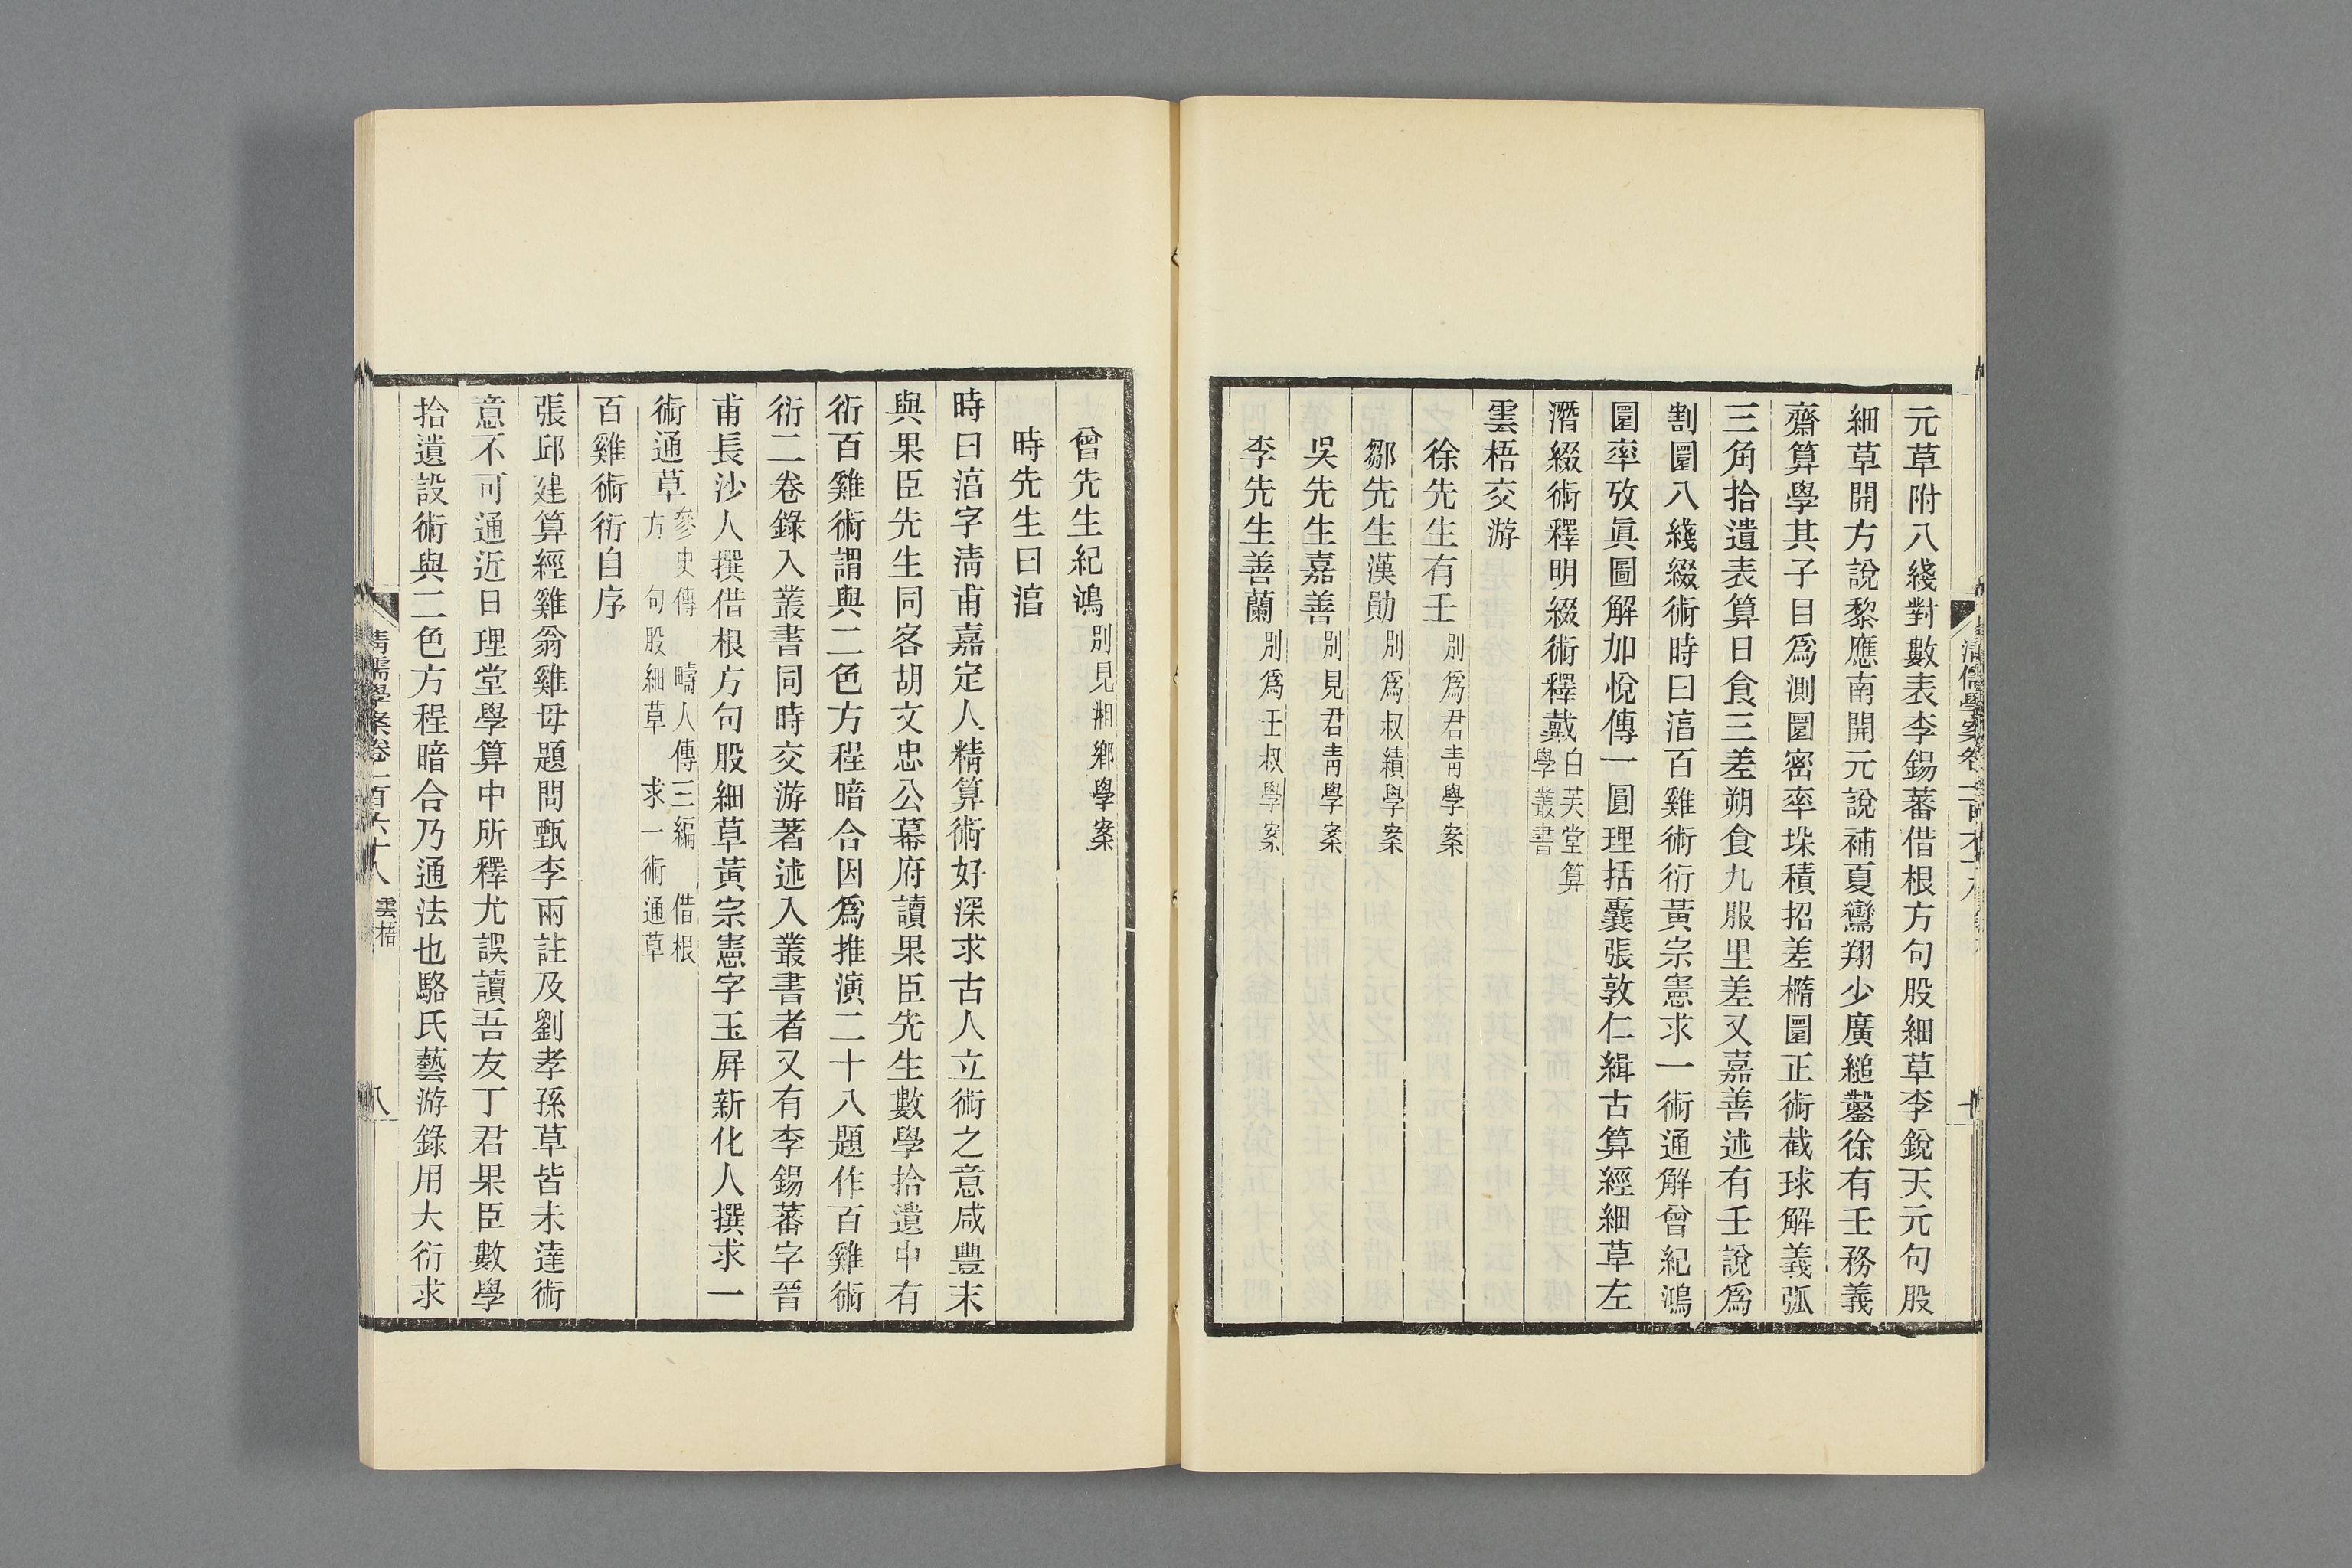 元草附八綫對數表李錫蕃借根方句股細草李銳天元句股
細草開方說黎應南開元說補夏鸞翔少廣縋鑿徐有壬務義
齋算學其子曰爲測圜密率垛積招差橢圜正術截球解義弧
三角拾遺表算日食三差朔食九服里差又嘉善述有壬說爲
割圜八綫綴術時曰淯百雞術衍黃宗憲求一術通解曾紀鴻
圜率攷眞圖解加悅傳一圓理括囊張敦仁緝古算經細草左
潛綴術釋明綴術釋戴白芙堂算學叢書
雲梧交游
徐先生有壬別爲君靑學案
鄒先生漢勛別爲叔績學案
吳先生嘉善別見君靑學案
李先生善蘭別爲壬叔學案
曾先生紀鴻別見湘鄉學案
時先生曰淯
時曰淯字淸甫嘉定人精算術好深求古人立術之意咸豐末
與果臣先生同客胡文忠公幕府讀果臣先生數學拾遺中有
衍百雞術謂與二色方程暗合因爲推演二十八題作百雞術
衍二卷錄入叢書同時交游著述入叢書者又有李錫蕃字晉
甫長沙人撰借根方句股細草黃宗憲字玉屛新化人撰求一
術通草參史傳 疇人傳三編 借根方 句股細草 求一術通草
百雞術衍自序
張邱建算經雞翁雞母題問甄李兩註及劉孝孫草皆未達術
意不可通近日理堂學算中所釋尤誤讀吾友丁君果臣數學
拾遺設術與二色方程暗合乃通法也駱氏藝游錄用大衍求
淸儒學案卷一百六十八 雲梧
八